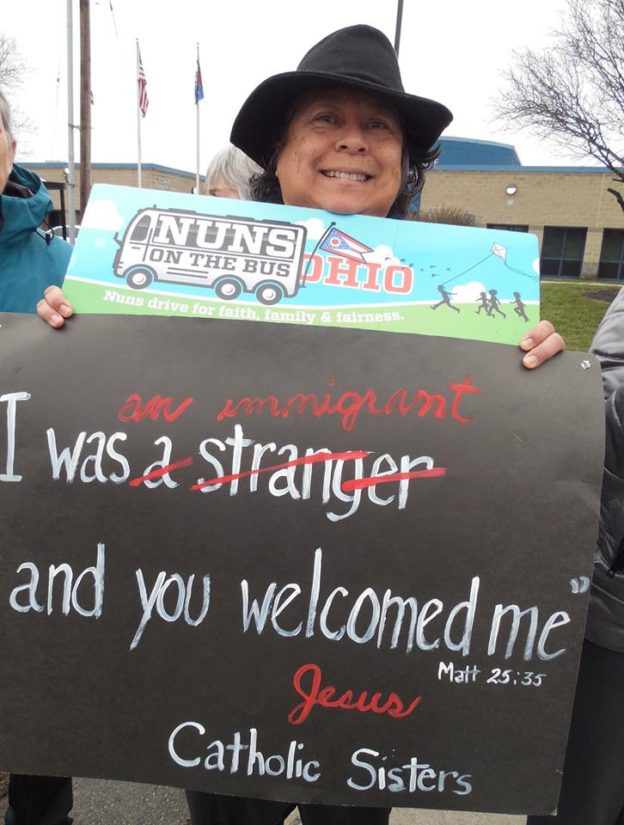 NUNS
ON THE BUS
OHIO
Nuns drive for faith, family & fairness.
an immigrant
I was a stranger
and you welcomed me"
Matt 25:35
Jesus
Catholic Sisters